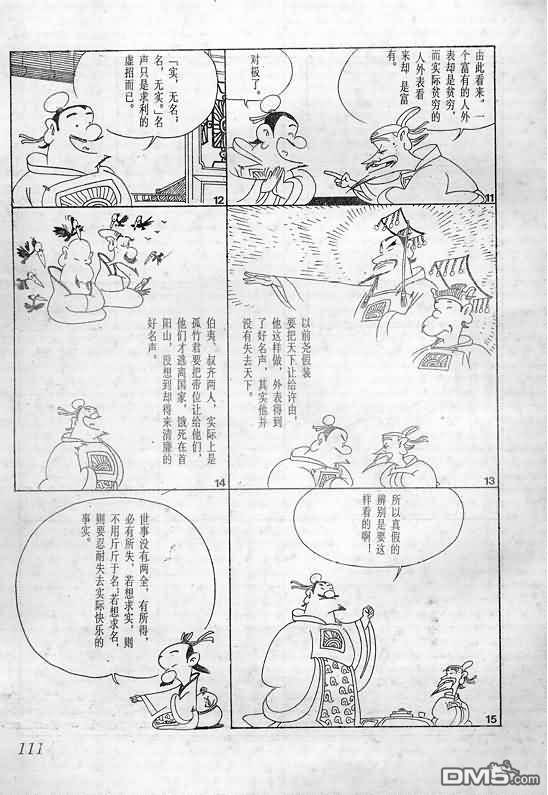 由此看来，一
个富有的人外
表却是贫穷，
而实际贫穷的
人外表看
来却 是富
有。
对极了。
11
「实，无名；
名，无实。」名
声只是求利的
虚招而已。
12
以前尧假装
要把天下让给许由，
他这样做，外表得到
了好名声，其实他并
没有失去天下。
13
伯夷、叔齐两人，实际上是
孤竹君要把帝位让给他们，
他们才逃离国家，饿死在首
阳山，没想到却得来清廉的
好名声。
14
所以真假的
辨别是要这
样看的啊！
15
世事没有两全，有所得，
必有所失，若想求实，则
不用斤斤于名；若想求名，
则要忍耐失去实际快乐的
事实。
111
DM5.com